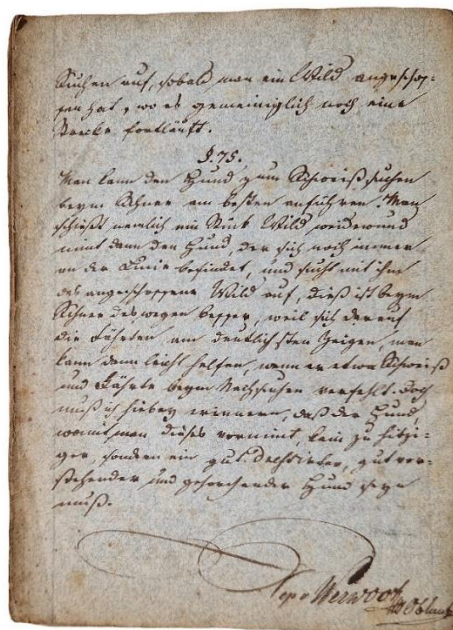 Suchen auf, sobald man ein Wild angeschos-
sen hat, wo es gemeiniglich noch eine
Strecke fortläuft.
§. 75.
Man kann den Hund zum Schweiß suchen
beym Schnee am besten anführen. Man
schießt nemlich ein Stück Wild weidewund
nimt dann den Hund der sich noch immer
an der Leine befindet, und sucht mit ihm
das angeschossene Wild auf, dieß ist beym
Schnee deswegen besser, weil sich darauf
die Fährten am deutlichsten zeigen, man
kann dann leicht helfen, wenn er etwa Schweiß
und Fährte beym Nachsuchen verfehlt. Doch
muß ich hiebey erinnern, daß der Hund,
womit man dieses vornimt, kein zu hitzi-
ger sondern ein gut dressirter, gut ver-
stehender und gehorchender Hund seyn
muß.